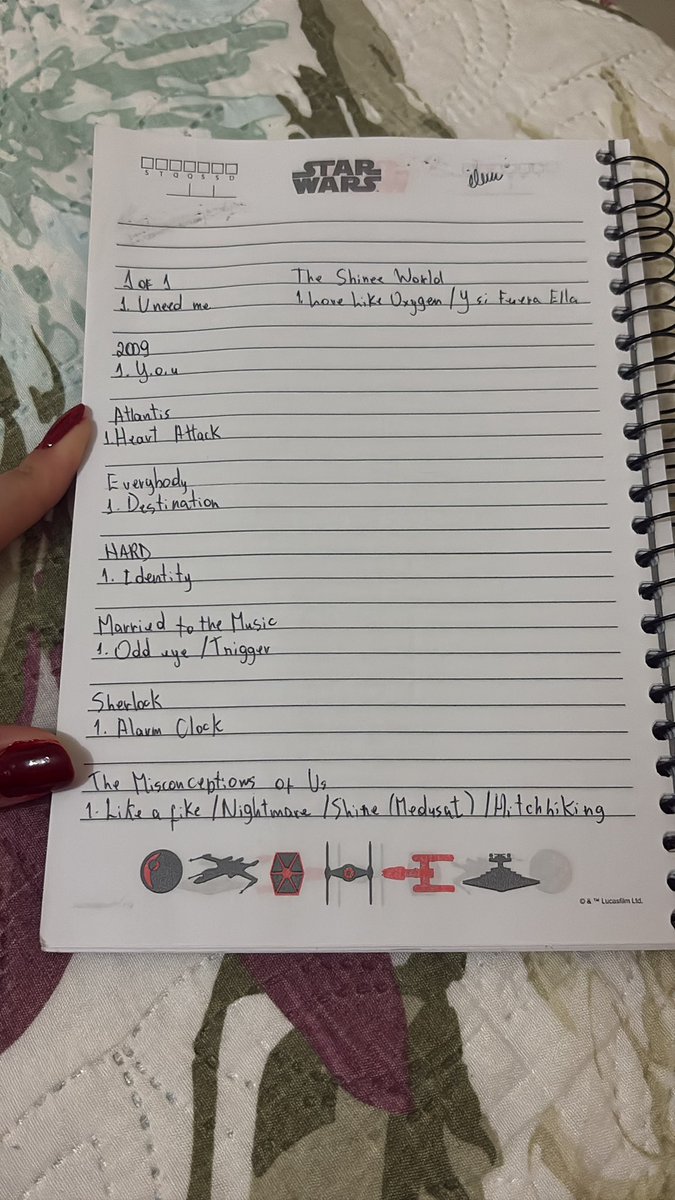 S T Q Q S S D
STAR
WARS
1 of 1
1. U need me
The Shinee World
1. Love Like Oxygen / Y si Fuera Ella
2009
1. Y.o.u
Atlantis
1 Heart Attack
Everybody
1. Destination
HARD
1. Identity
Married to the Music
1. Odd eye / Trigger
Sherlock
1. Alarm Clock
The Misconceptions of Us
1. Like a fike / Nightmare / Shine (Medusa1) / Hitchhiking
© & ™ Lucasfilm Ltd.